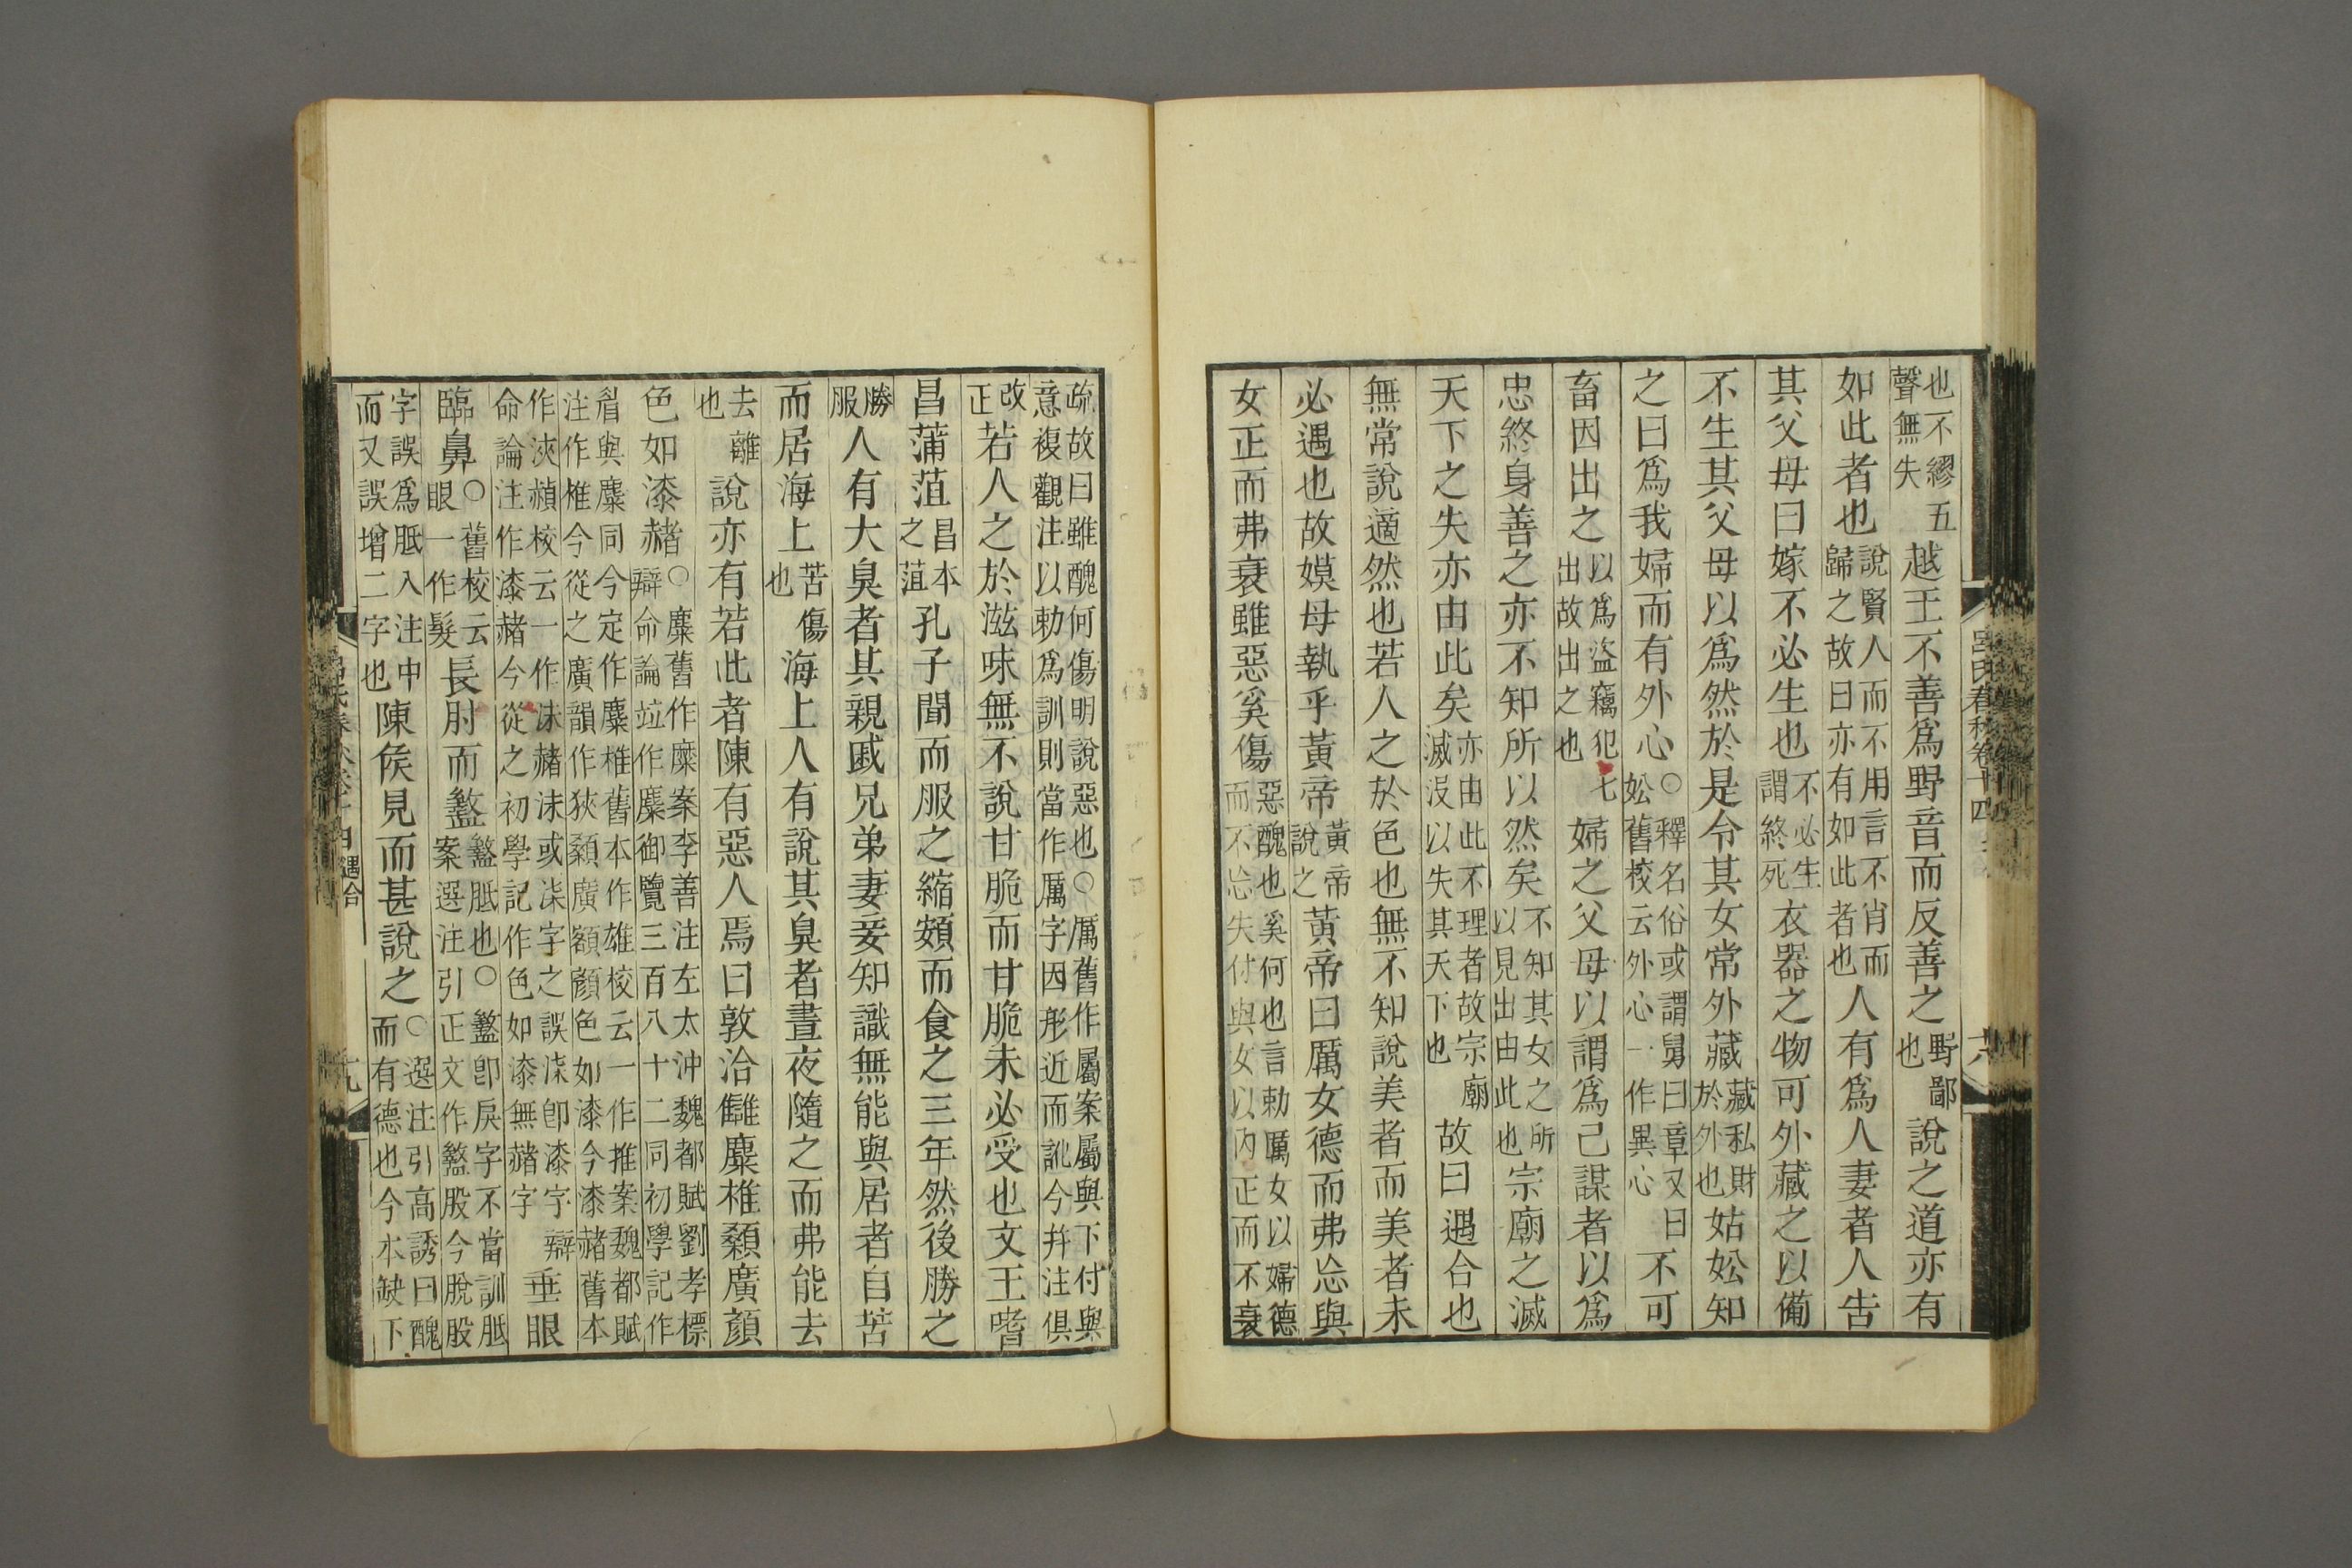 也不繆五
聲無失
越王不善爲野音而反善之野鄙也說之道亦有
如此者也說賢人而不用言不肖而歸之故曰亦有如此者也人有爲人妻者人告
其父母曰嫁不必生也不必生謂終死衣器之物可外藏之以備
不生其父母以爲然於是令其女常外藏藏私財於外也姑妐知
之曰爲我婦而有外心○釋名俗或謂舅曰章又曰妐舊校云外心一作異心不可
畜因出之以爲盜竊犯七出故出之也婦之父母以謂爲己謀者以爲
忠終身善之亦不知所以然矣不知其女之所以見出由此也宗廟之滅
天下之失亦由此矣亦由此不理者故宗廟滅沒以失其天下也故曰遇合也
無常說適然也若人之於色也無不知說美者而美者未
必遇也故嫫母執乎黃帝黃帝說之黃帝曰厲女德而弗忘與
女正而弗衰雖惡奚傷惡醜也奚何也言勑厲女以婦德而不忘失付與女以內正而不衰
疏故曰雖醜何傷明說惡也○厲舊作屬案屬與下付與
意複觀注以勑爲訓則當作厲字因形近而訛今幷注俱
改正若人之於滋味無不說甘脆而甘脆未必受也文王嗜
昌蒲菹昌本之菹孔子聞而服之縮頞而食之三年然後勝之
勝服人有大臭者其親戚兄弟妻妾知識無能與居者自苦
而居海上苦傷也海上人有說其臭者晝夜隨之而弗能去
去離也說亦有若此者陳有惡人焉曰敦洽讎麋椎顙廣顏
色如漆赭○麋舊作糜案李善注左太沖魏都賦劉孝標辯命論竝作麋御覽三百八十二同初學記作
眉與麋同今定作麋椎舊本作雄校云一作推案魏都賦
注作椎今從之廣韻作狹顙廣額顏色如漆今漆赭舊本
作浹赬校云一作沬赭沬或柒字之誤柒卽漆字辯
命論注作漆赭今從之初學記作色如漆無赭字
垂眼
臨鼻○舊校云眼一作髮長肘而盭盭胝也○盭卽戾字不當訓胝案選注引正文作盭股今脫股
字誤爲胝入注中而又誤增二字也陳侯見而甚說之○選注引高誘曰醜而有德也今本缺下
呂氏春秋卷十四
遇合